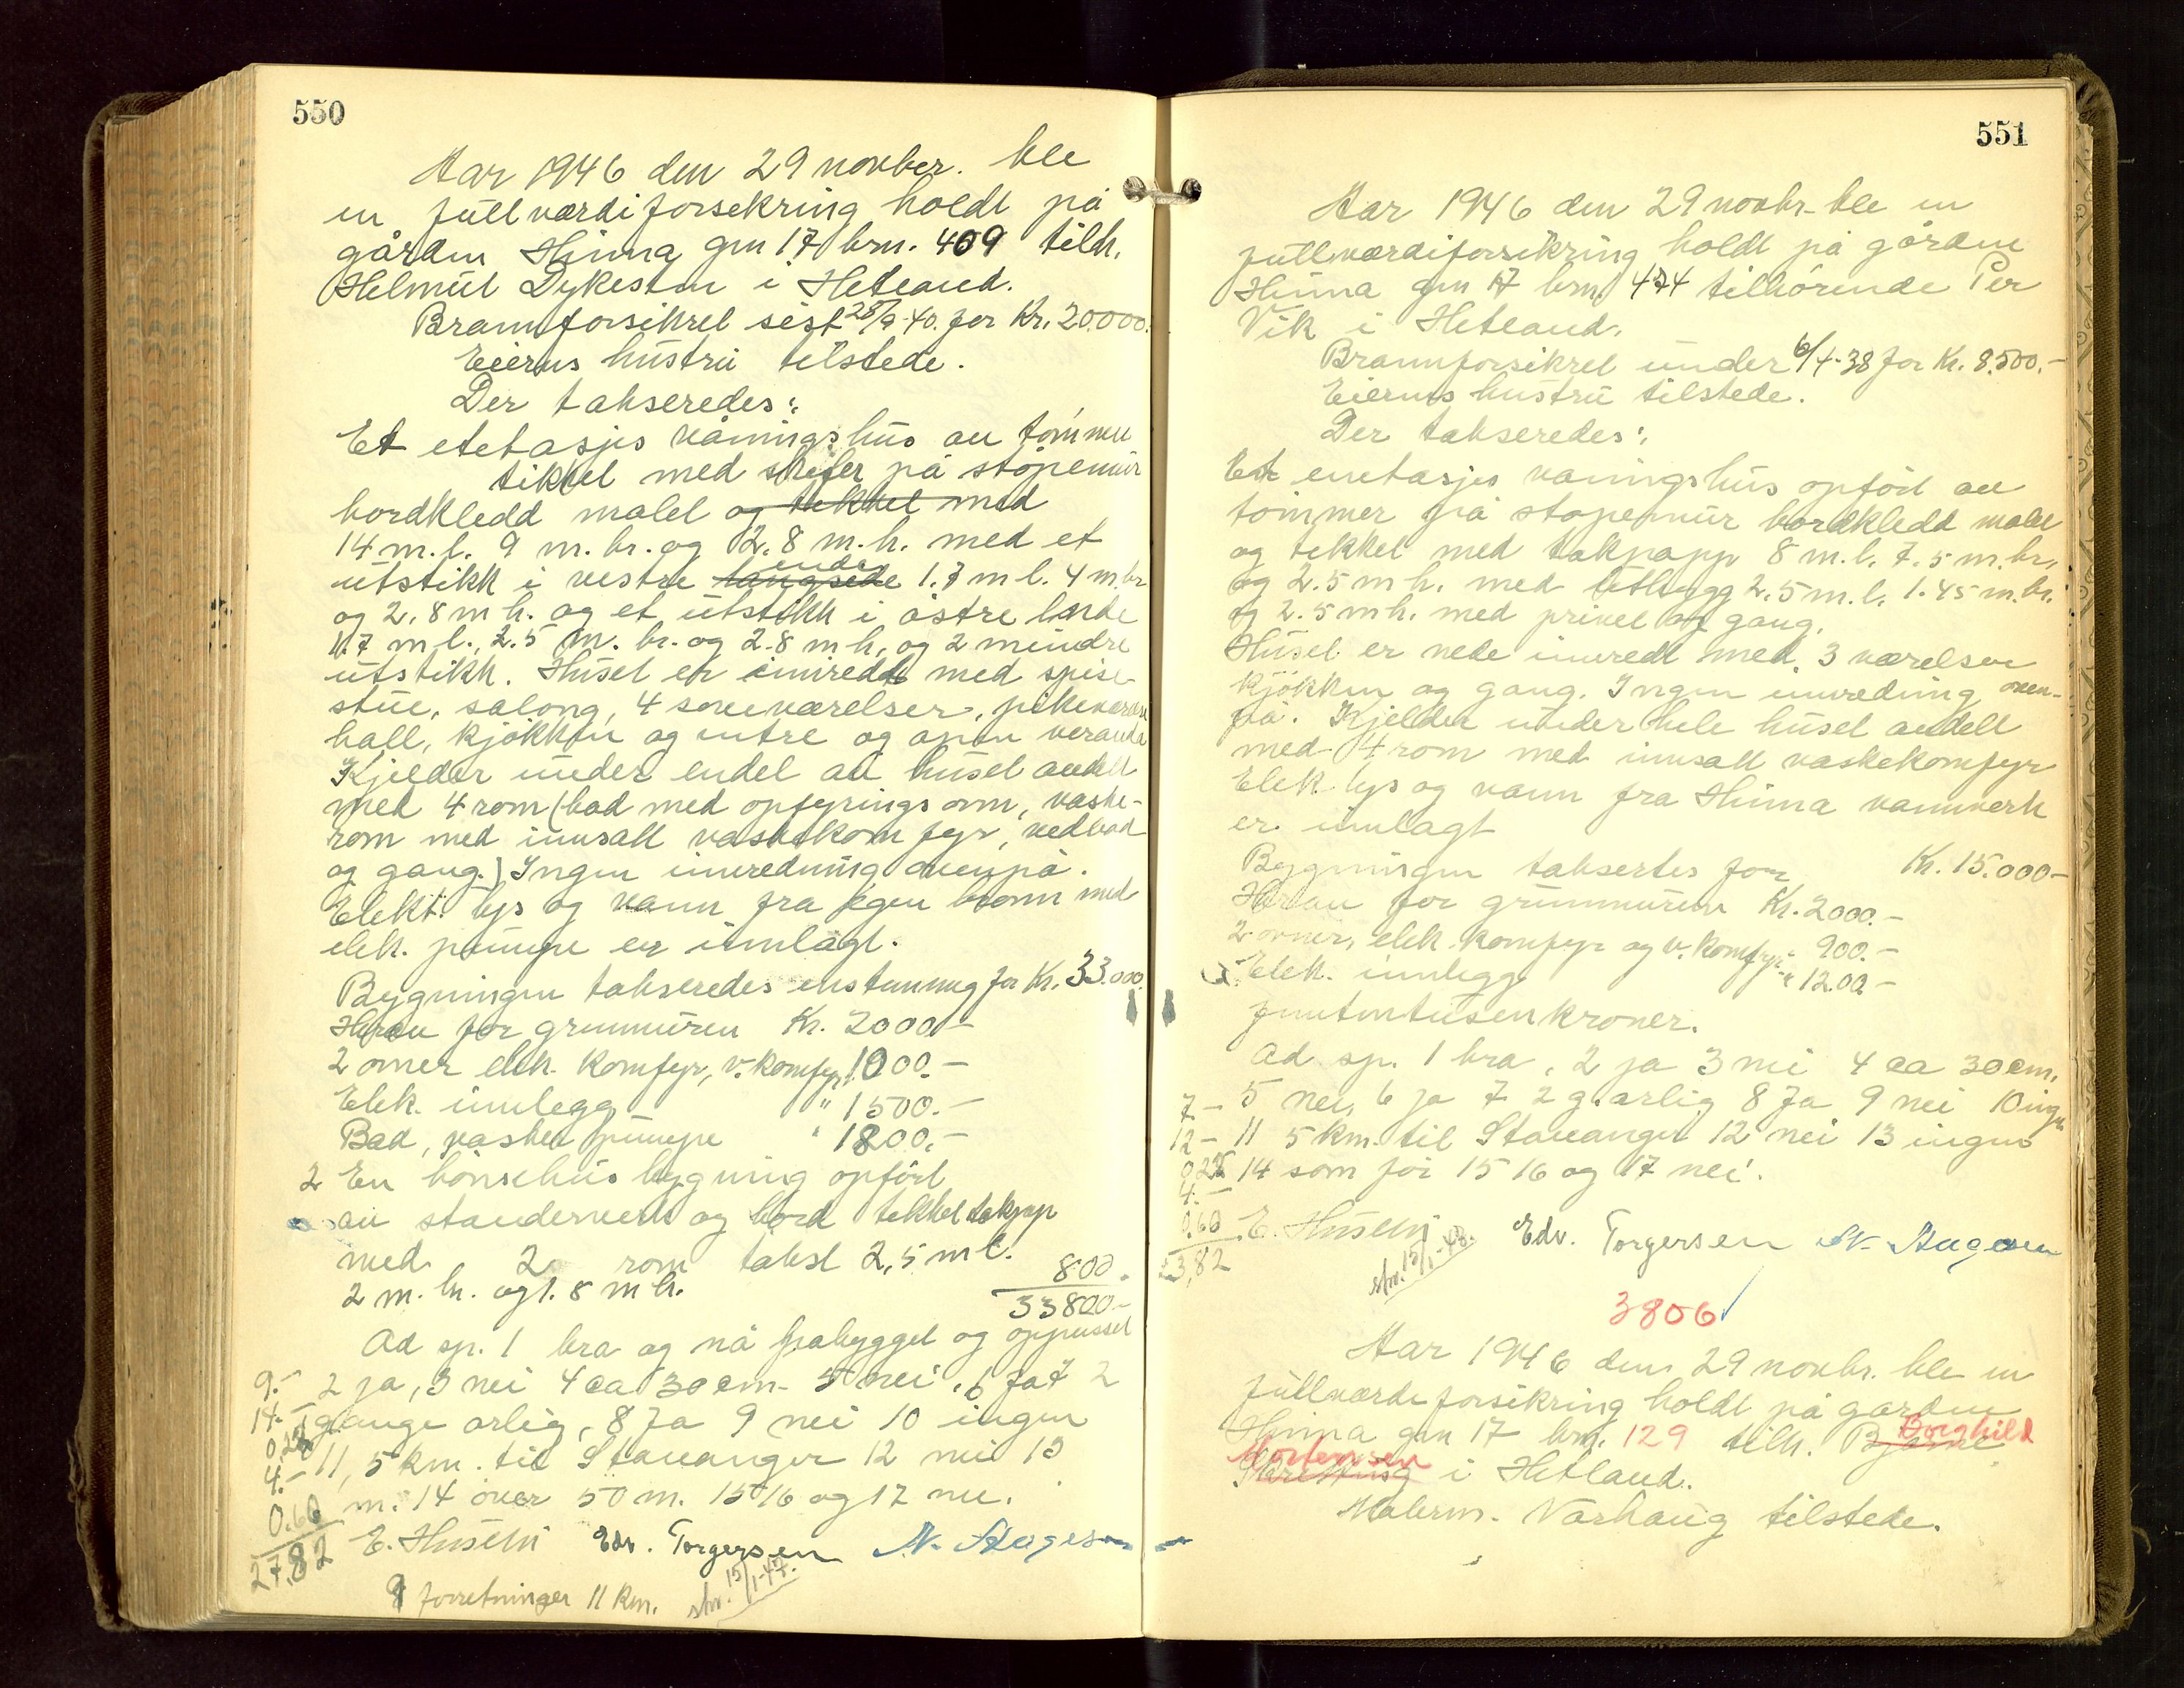 550
Aar 1946 den 29 novber. ble
en fullværdiforsekring holdt på
gården Hinna grn 17 brn. 409 tilh.
Helmut Dykesten i Hetland.
Brannforsikret sist 28/9-40. for Kr. 20.000.
Eierens hustru tilstede.
Der takseredes:
Et etetasjes våningshus av tømmer
tikket med skifer på støpemur
bordkledd malet og tekket med
14 m.l. 9 m. br. og 2.8 m.h. med et
utstikk i vestre langside ende 1.7 m l. 4 m.br
og 2.8 m h. og et utstikk i østre ende
1.7 m l., 2.5 m. br. og 2.8 m h, og 2 mindre
utstikk. Huset er innredt med spise-
stue, salong, 4 soveværelser, pikeværelse
hall, kjøkken og entre og åpen veranda
Kjelder under endel av huset avdelt
med 4 rom (bad med opfyringsovn, vaske-
rom med innsatt vaskekomfyr, vedbod
og gang.) Ingen innredning ovenpå.
Elektr. lys og vann fra egen brønn med
elek. pumpe er innlagt.
Bygningen takseredes enstemmig for Kr. 33.000.
Herav for grunnmuren Kr. 2000.-
2 ovner elek. komfyr, v. komfyr 1000.-
Elek. innlegg " 1500.-
Bad, vasker pumpe " 1800.-
2 En hønsehus bygning opført
av standerverk og bord tekket takpap
med 2 rom takst 2,5 m l.
2 m. br. og 1.8 m h. 800.
33800.-
Ad sp. 1 bra og nå påbygget og oppusset
9.- 2 ja, 3 nei 4 ca 30 cm. 5 nei, 6 ja 7 2
14.- gange årlig, 8 Ja 9 nei 10 ingen
0,22
4.- 11, 5 km. til Stavanger 12 nei 13
0.60 m. 14 over 50 m. 15 16 og 17 nei.
27,82 E. Husebø Edv. Torgersen N. Stagesen
8 forretninger 11 km. skr. 15/1-47.
551
Aar 1946 den 29 novbr. ble en
fullværdiforsikring holdt på gården
Hinna grn 17 brn 474 tilhørende Per
Vik i Hetland.
Brannforsikret under 6/4-38 for Kr. 8.500.-
Eierens hustru tilstede.
Der takseredes:
Et enetasjes våningshus opført av
tømmer på støpemur bordkledd malet
og tekket med takpapp 8 m.l. 7.5 m. br,
og 2.5 m h. med tilbygg 2.5 m.l. 1.45 m. br.
og 2.5 m h. med privet og gang.
Huset er nede innredt med 3 værelser
kjøkken og gang. Ingen innredning oven-
på. Kjelder under hele huset avdelt
med 4 rom med innsatt vaskekomfyr
Elek lys og vann fra Hinna vannverk
er innlagt
Bygningen taksertes for Kr. 15.000-
Herav for grunnmuren Kr. 2000.-
2 ovner, elek. komfyr og v. komfyr " 900.-
Elek. innlegg " 1200.-
femtentusenkroner.
Ad sp. 1 bra, 2 ja 3 nei 4 ca 30 cm.
7- 5 nei, 6 ja 7 2 g. årlig 8 Ja 9 nei 10 ingen
12- 11 5 km. til Stavanger 12 nei 13 ingen
0,22 14 som før 15 16 og 17 nei.
4.-
0,60 E. Husebø Edv. Torgersen N. Stagesen
23,82 skr. 15/1-48.
3806
Aar 1946 den 29 novbr. ble en
fullværdeforsikring holdt på gården
Hinna grn 17 brn. 129 tilh. Bjarne Borghild
Mortensen i Hetland.
Malerm. Varhaug tilstede.